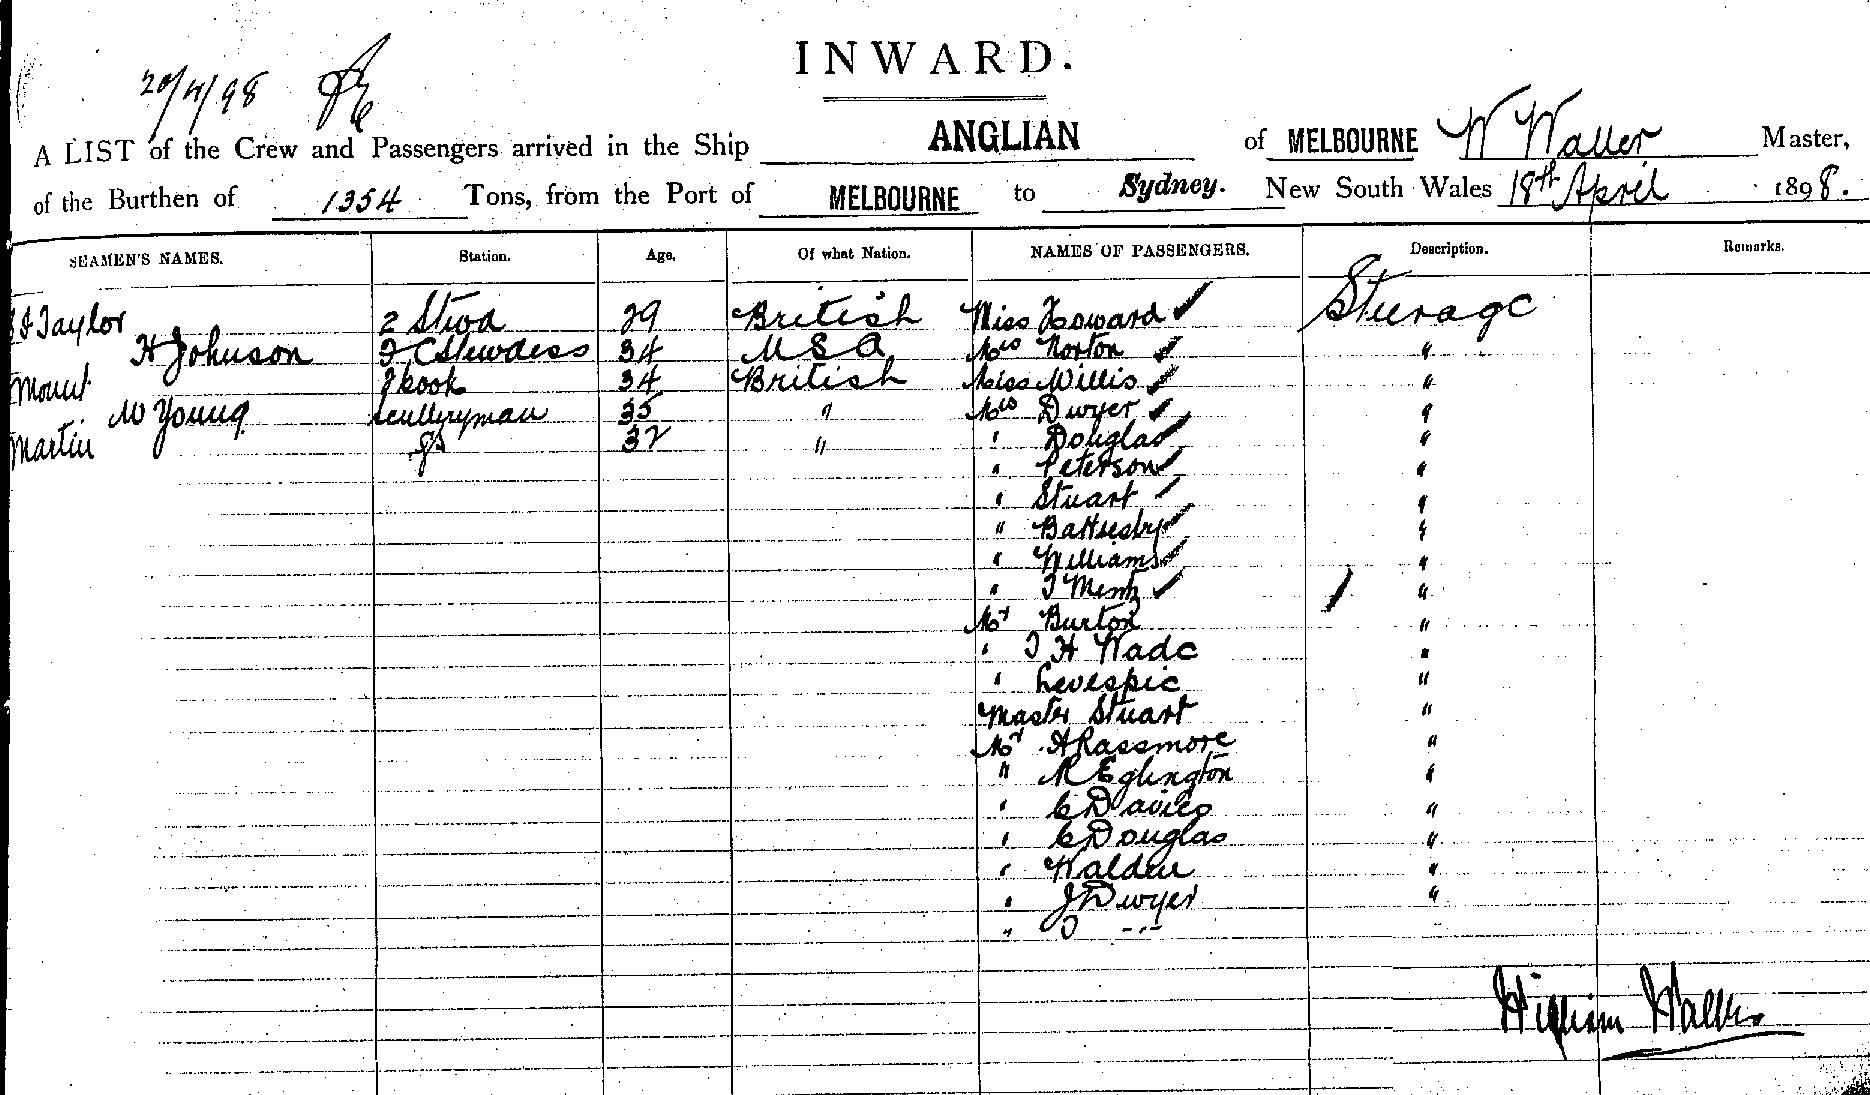 INWARD.
20/4/98
A LIST of the Crew and Passengers arrived in the Ship ANGLIAN of MELBOURNE W Waller Master,
of the Burthen of 1354 Tons, from the Port of MELBOURNE to Sydney. New South Wales 18th April 1898.
SEAMEN'S NAMES. Station. Age. Of what Nation. NAMES OF PASSENGERS. Description. Remarks.
Taylor 2 Stwd 29 British Miss Howard Sturage
H Johnson Stewdess 34 U S A Mrs Norton "
Mount cook 34 British Miss Willis "
W Young scullryman 35 " Mrs Dwyer "
Martin 32 " " Douglas "
" Peterson "
" Stuart "
" Battersby "
" Williams "
" T Mentz "
Mr Burton "
" T H Wade "
" Levespie "
Master Stuart "
Mr A Rassmore "
" R Eglington "
" C Davies "
" C Douglas "
" Walden "
" J Dwyer "
"
William Waller